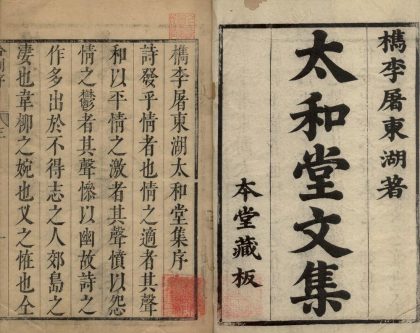 檇李屠東湖著
太和堂文集
本堂藏板
檇李屠東湖太和堂集序
詩發乎情者也情之適者其聲
和以平情之激者其聲憤以怨
情之鬱者其聲慘以幽故詩之
作多出於不得志之人郊島之
淒也韋柳之婉也又之恠也仝